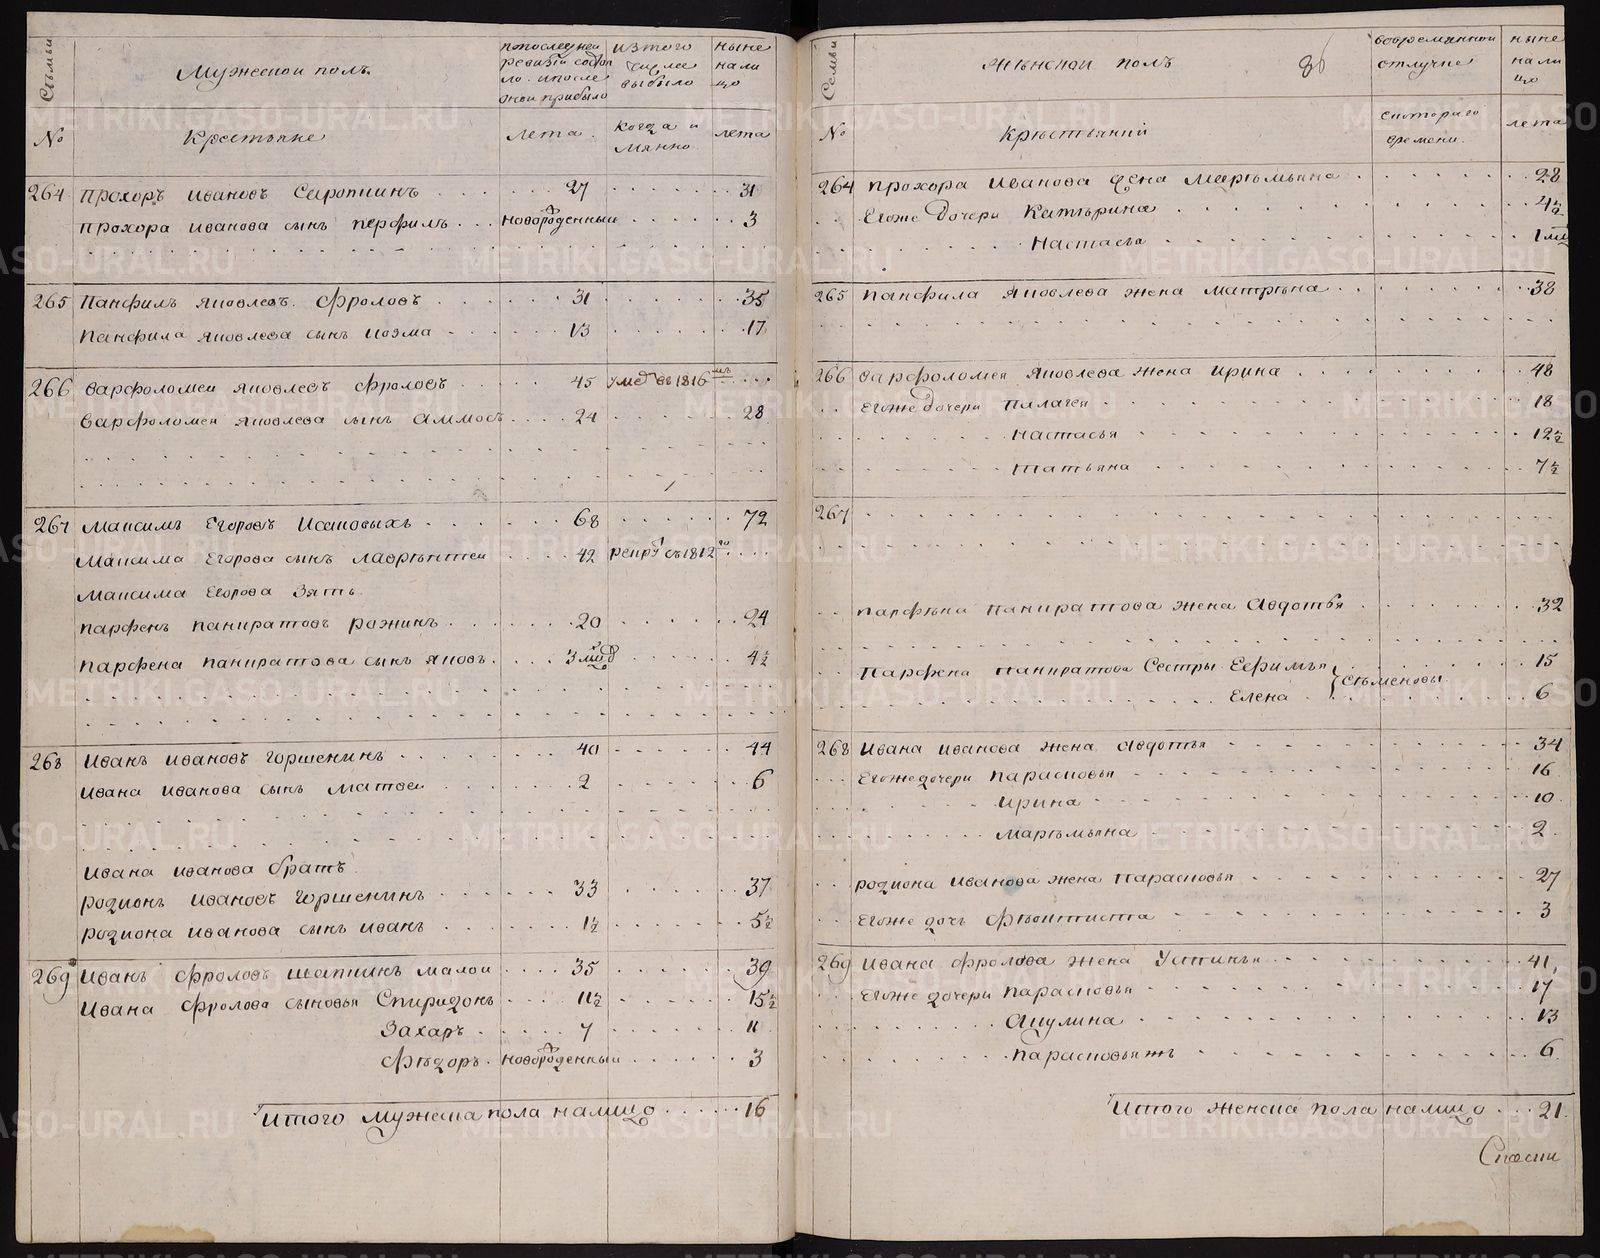 Семьи
Мужескои полъ
попоследнеи ревизiи состояло. ипосле онои прибыло
изтого числа выбыло
ныне на лицо
№
Крестьяне
лета
когда и мянно
лета
264 прохоръ ивановъ Сиротинъ 27 31
прохора иванова сынъ перфилъ новорожденныи 3
265 Панфилъ яковлевъ фроловъ 31 35
Панфила яковлева сынъ козма 13 17
266 варфоломеи яковлевъ фроловъ 45 умре въ 1816мъ
варфоломея яковлева сынъ аммосъ 24 28
267 Максимъ Егоровъ Исаковыхъ 68 72
Максима Егорова сынъ лаврентеи 42 рекрутъ съ 1812го
Максима Егорова зять
парфенъ панкратовъ рожинъ 20 24
парфена панкратова сынъ яковъ 3 мцд 4½
268 иванъ ивановъ горшенинъ 40 44
ивана иванова сынъ матвеи 2 6
ивана иванова братъ
родионъ ивановъ горшенинъ 33 37
родиона иванова сынъ иванъ 1½ 5½
269 Иванъ фроловъ шапкинъ малои 35 39
Ивана фролова сыновья Спиридонъ 11½ 15½
Захаръ 7 11
Фъдоръ новорожденныи 3
Итого мужеска пола налицо 16
Семьи
женскои полъ
36
вовременнои отлучке
ныне на ли цо
№
крестьянки
скотораго времени
лета
264 прохора Иванова жена Маремьяна 28
Егоже дочери Катърина 4½
Настасья 1 мц
265 панфила яковлева жена матрена 38
266 варфоломея яковлева жена ирина 48
Егоже дочери пилагея 18
настасья 12½
татьяна 7½
267
парфена панкратова жена авдотья 32
Парфена панкратова Сестры Ефимья 15
Семеновы
Елена 6
268 ивана иванова жена авдотья 34
Егоже дочери парасковья 16
ирина 10
маремьяна 2
родиона иванова жена парасковья 27
Егоже дочь фиоктиста 3
269 ивана фролова жена устинья 41
Егоже дочери парасковья 17
Акулина 13
парасковья ж 6
Итого женска пола налицо 21